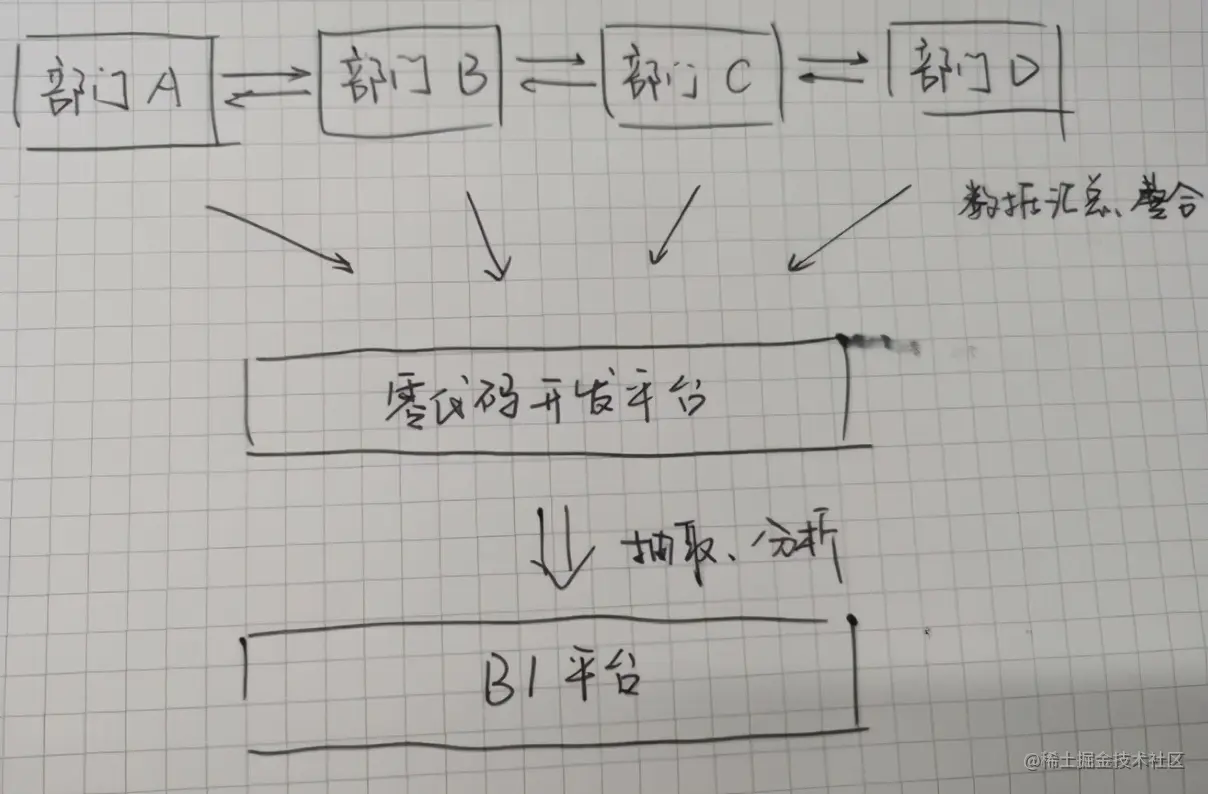 部门 A 部门 B 部门 C 部门 D
数据汇总、整合
零代码开发平台
抽取、分析
BI 平台
@稀土掘金技术社区